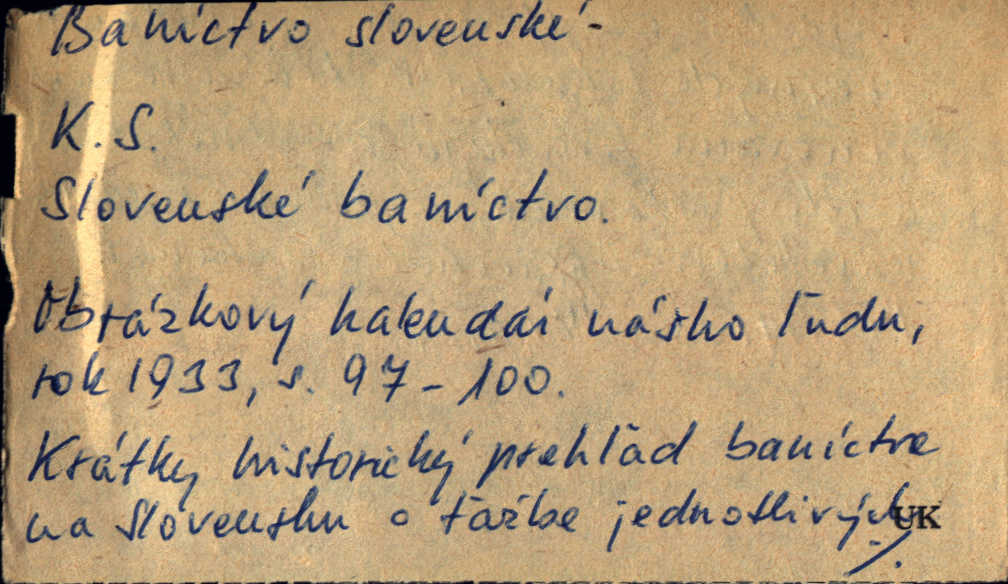 Baníctvo slovenské -
K. S.
Slovenské baníctvo.
Obrázkový kalendár nášho ľudu,
rok 1933, s. 97 - 100.
Krátky historický prehľad baníctva
na Slovensku o ťažbe jednotlivých
UK